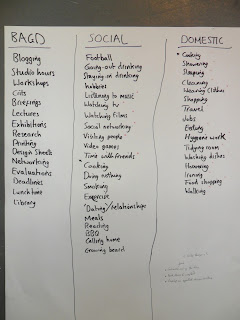 BAGD
Blogging
Studio hours
Workshops
Crits
Briefings
Lectures
Exhibitions
Research
Printing
Design Sheets
Networking
Evaluations
Deadlines
Lunch time
Library
SOCIAL
Football
Going-out drinking
Staying in drinking
hobbies
Listening to music
Watching tv
Watching films
Social networking
Visiting people
Video games
Time with friends
Cooking
Doing nothing
Smoking
Exercise
Dating/relationships
Meals
Reading
BBQ
Calling home
Growing beard
DOMESTIC
Cooking
Showering
Sleeping
Cleaning
Washing Clothes
Shopping
Travel
Jobs
Eating
Hygiene work
Tidying room
Washing dishes
Ironing
Food shopping
Walking